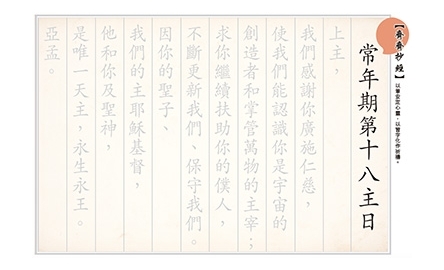 【齊齊抄經】以筆安定心靈，以習字化作祈禱。
常年期第十八主日
上主，
我們感謝你廣施仁慈，
使我們能認識你是宇宙的
創造者和掌管萬物的主宰；
求你繼續扶助你的僕人，
不斷更新我們、保守我們。
因你的聖子、
我們的主耶穌基督，
他和你及聖神，
是唯一天主，永生永王。
亞孟。